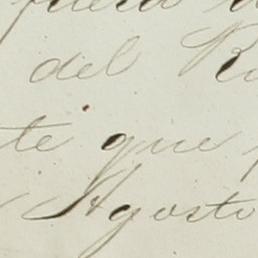 fuera
del
te que
Agosto